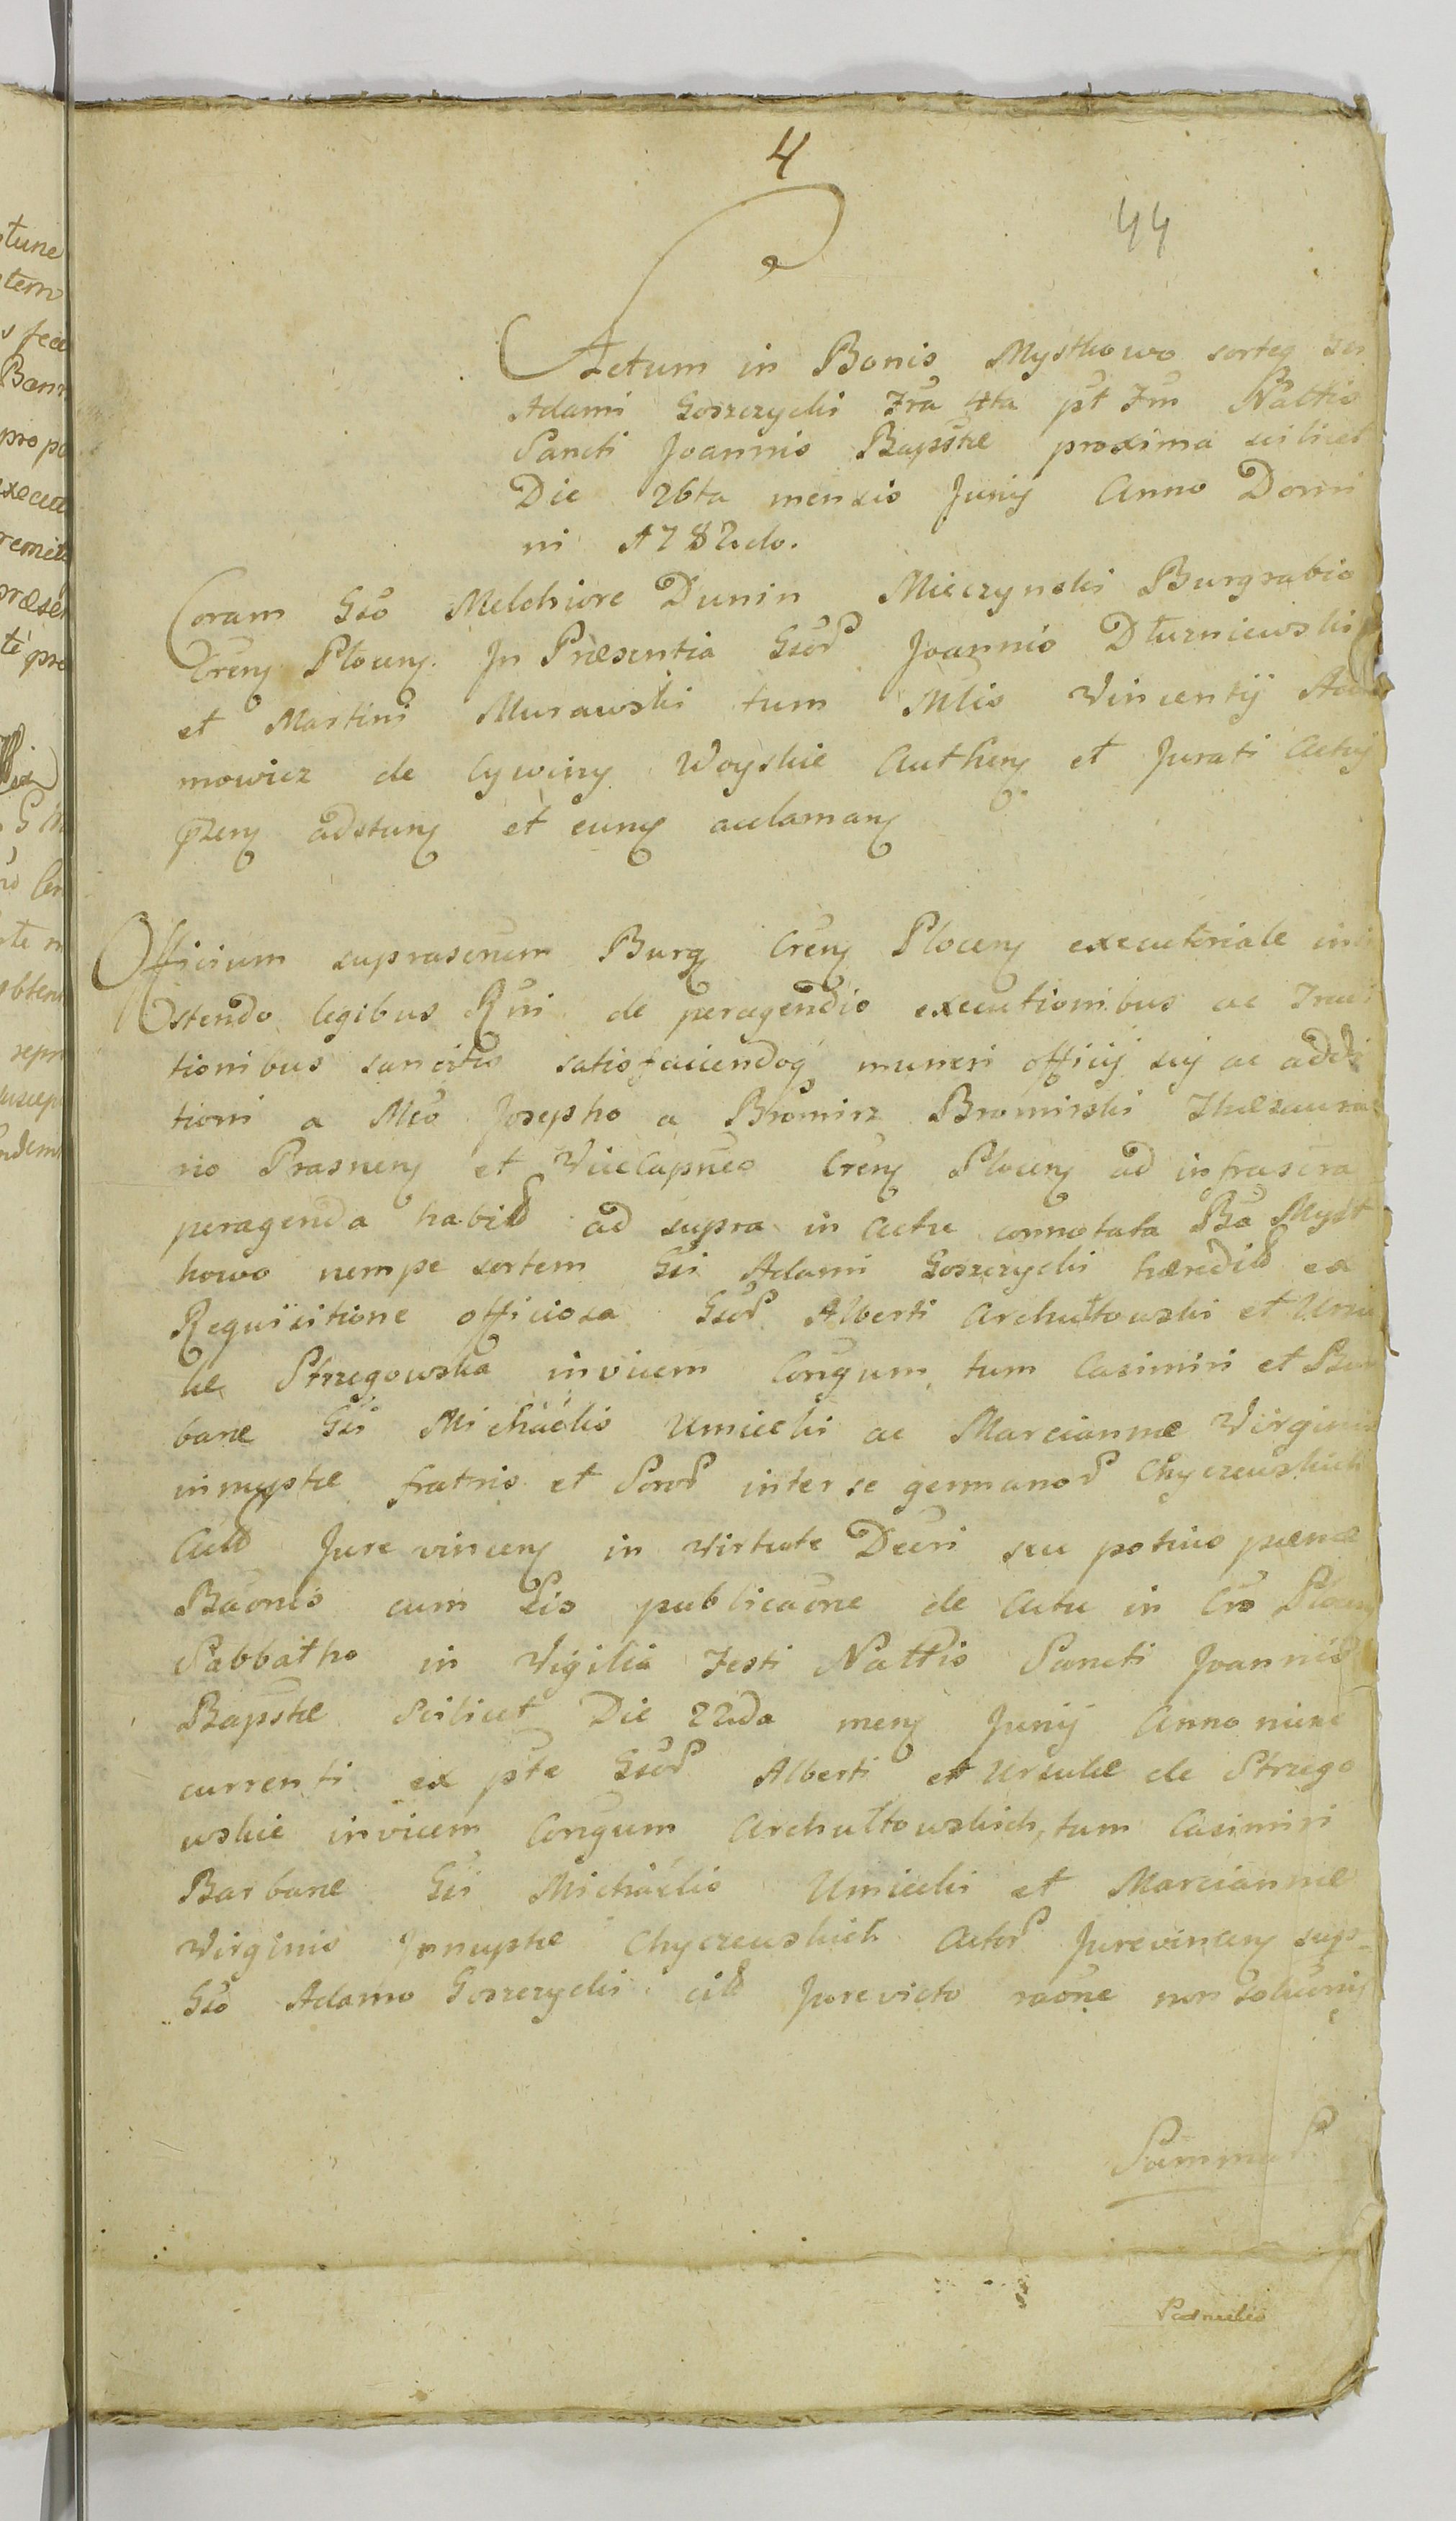 4
44
Actum in Bonis Mysthowo sorteq Gsi
Adami Goszczycki Fra 4ta pt Fm Nattis
Sancti Joannis Bapstæ proxima scilicet
Die 26ta mensis Junij Anno Domi
ni 1782do.
Coram Gso Melchiore Dunin Mieczynski Burgrabio
Crens Plocens. In Præsentia Gsor Joannis Dłużniewski
et Martini Murawski tum Mlis Vincentij Ada
mowicz de Cywiny Woyskie Authens et Jurati Actus
przens adstans et eums acclamans
Officium suprascrum Burg Crens Plocens executoriale
ostendo legibus Rni de peragendis executionibus ac
tionibus sancitis satisfaciendoq muneri officij sui ac addi
tioni a Mco Josepho a Bromirz Bromirski Thesaura
rio Prasnens et ViceCapneo Crens Plocens ad infrascra
peragenda ad supra in Actu connotata Bа Myst
howo nempe sortem Gsi Adami Goszczycki hæredit ex
Requisitione officiosa Gsor Alberti Archutowski et Ursu
læ Strzegowska invicem Congum, tum Casimiri et Bar
baræ Gsi Michaelis Umiecki ac Marciannæ Virginis
innuptæ fratris et Soror inter se germanor Chyczewskich
Jure vincens in virtute Decri seu potius pænæ
Baonis cum Eis publicaone de Actu in Cro Plocens
Sabbatho in Vigilia Festi Nattis Sancti Joannis
Bapstæ Scilicet Die 22da mens Junij Anno nunc
currenti ex pte Gsor Alberti et Ursulæ de Strzego
wskie invicem Congum Archutowskich, tum Casimiri
Barbaræ Gsi Michaelis Umiecki et Marciannæ
Virginis Innuptæ Chyczewskich Actor Jurevincens sup
Gso Adamo Goszczycki Jurevicto raone non
Summar